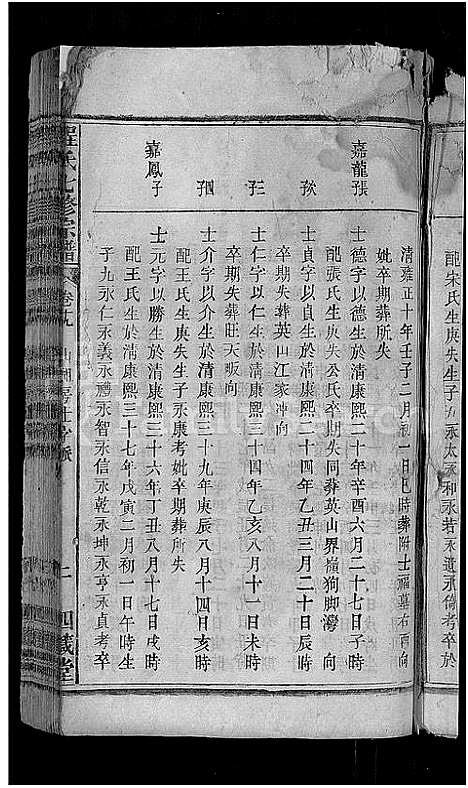 配宋氏生庚失生子九永太永和永若永道永倚考卒於
清雍正十年壬子二月初一日巳時葬附士福墓右酉向
妣卒期葬所失
嘉龍長子
士德字以德生於清康熙二十年辛酉六月二十七日子時
配張氏生庚失公氏卒期失同葬英山界橫狗脚灣 向
次子
士貞字以貞生於清康熙二十四年乙丑三月二十日辰時
卒期失葬英山江家冲向
三子
士仁字以仁生於清康熙三十四年乙亥八月十一日未時
卒期失葬旺天畈向
四子
士介字以介生於清康熙三十九年庚辰八月十四日亥時
配王氏生庚失生子永康考妣卒期葬所失
嘉鳳子
士元字以勝生於清康熙三十六年丁丑八月十七日戌時
配王氏生於清康熙三十七年戊寅二月初一日午時生
子九永仁永義永禮永智永信永乾永坤永亨永貞考卒
氏七修宗譜
卷九
四箴堂